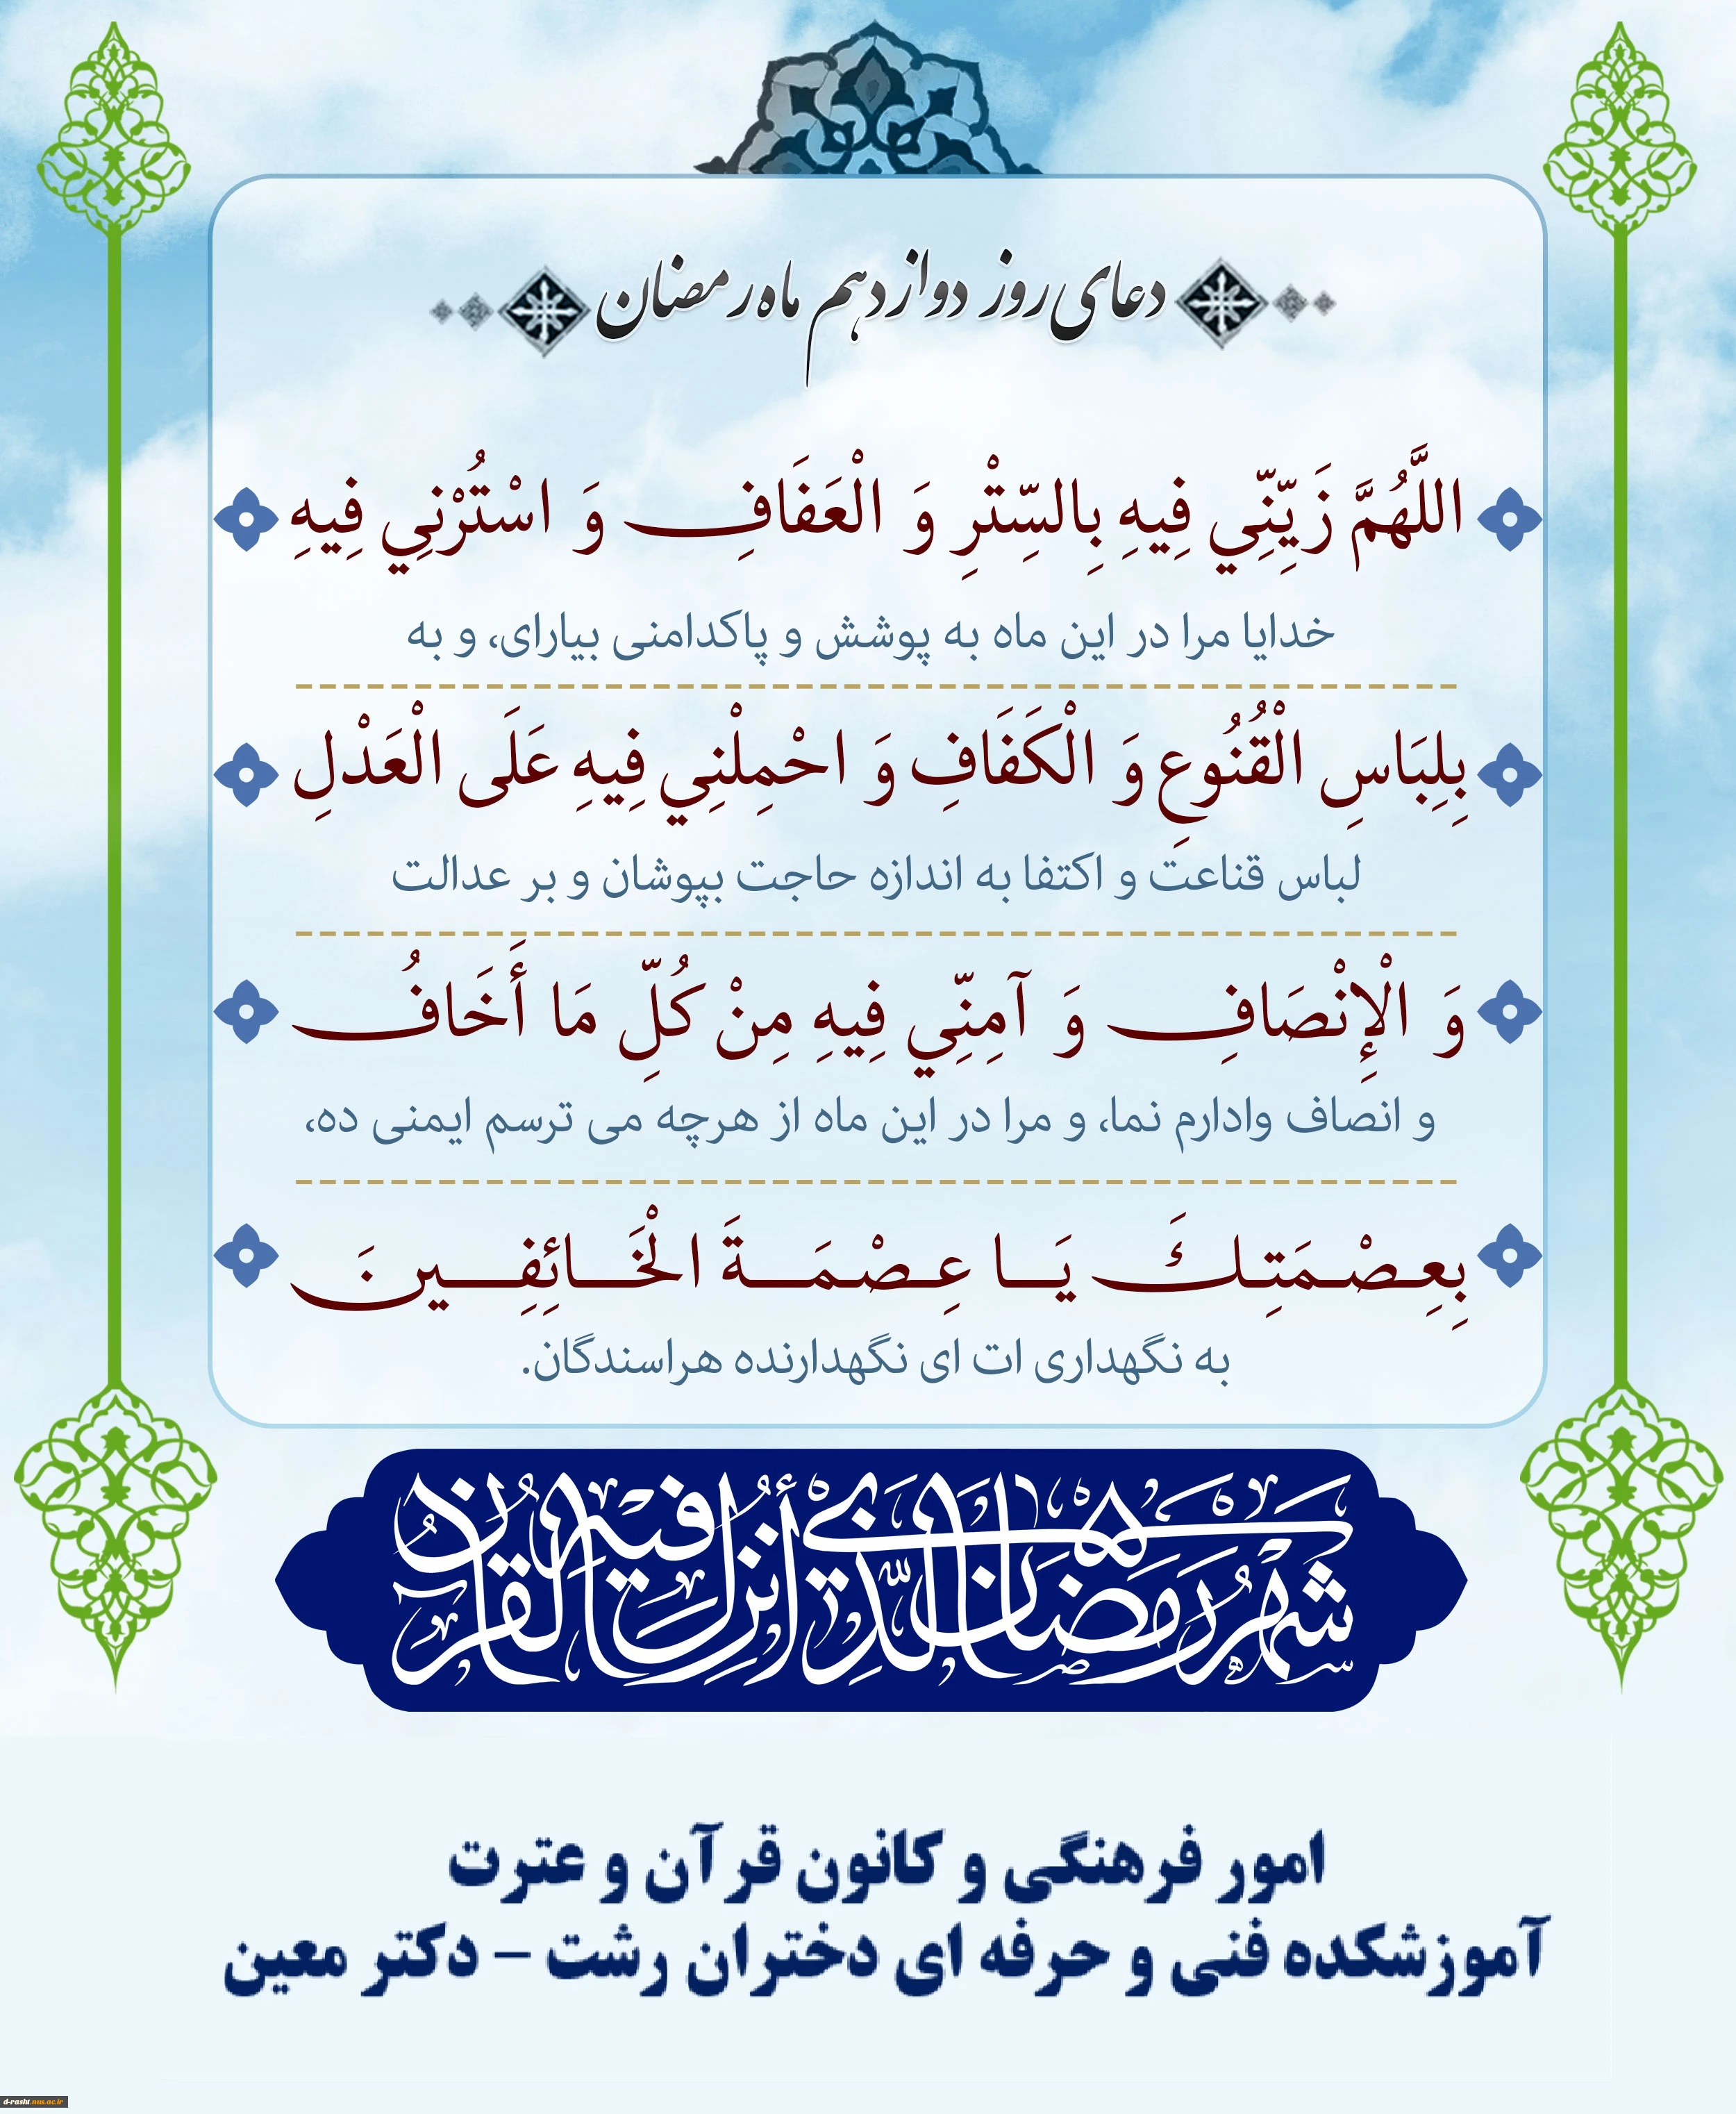 دعای روز دوازدهم ماه رمضان
اللَّهُمَّ زَيِّنِّي فِيهِ بِالسِّتْرِ وَ الْعَفَافِ وَ اسْتُرْنِي فِيهِ
خدایا مرا در این ماه به پوشش و پاکدامنی بیارای، و به
بِلِبَاسِ الْقُنُوعِ وَ الْكَفَافِ وَ احْمِلْنِي فِيهِ عَلَى الْعَدْلِ
لباس قناعت و اکتفا به اندازه حاجت بپوشان و بر عدالت
وَ الْإِنْصَافِ وَ آمِنِّي فِيهِ مِنْ كُلِّ مَا أَخَافُ
و انصاف وادارم نما، و مرا در این ماه از هرچه می ترسم ایمنی ده،
بِعِصْمَتِكَ يَا عِصْمَةَ الْخَائِفِينَ
به نگهداری ات ای نگهدارنده هراسندگان.
شهر رمضان الذي أنزل فيه القرآن
امور فرهنگی و کانون قرآن و عترت
آموزشکده فنی و حرفه ای دختران رشت – دکتر معین
d-rasht.nus.ac.ir